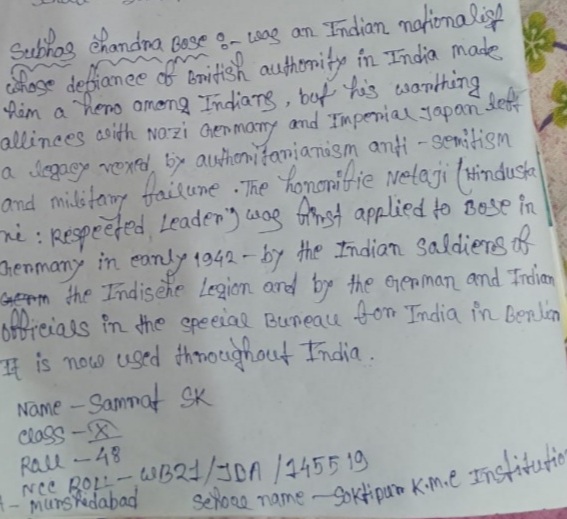 Subhas Chandra Bose :- was an Indian nationalist
whose defiance of British authority in India made
him a hero among Indians, but his warthing
allinces with Nazi Germany and Imperial Japan left
a legacy vexed by authoritarianism anti-semitism
and military failure. The honorific Netaji (Hindusta
ni : Respected Leader") was first applied to Bose in
Germany in early 1942 - by the Indian saldiers of
the Indische Legion and by the German and Indian
officials in the special Bureau for India in Berlin
It is now used throughout India.
Name - Samrat SK
class - X
Roll - 48
NCC ROLL - WB21/JDA/145519
- Murshidabad School name - Soktipur K.M.C Institutio